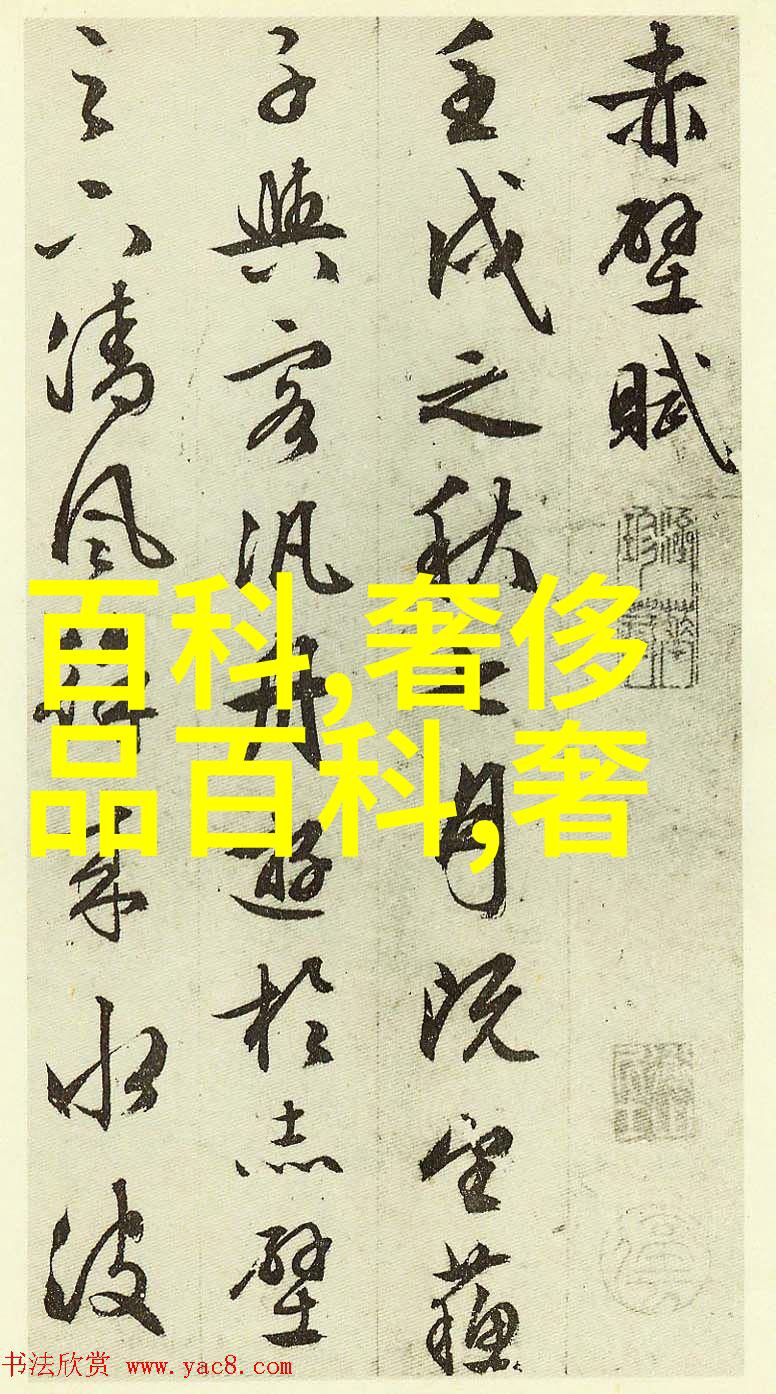 赤壁賦
壬戌之秋七月既望蘇
子與客汎舟遊於赤壁
之下清風徐來水波
百科,奢侈
品百科,奢
书法欣赏 www.yac8.com